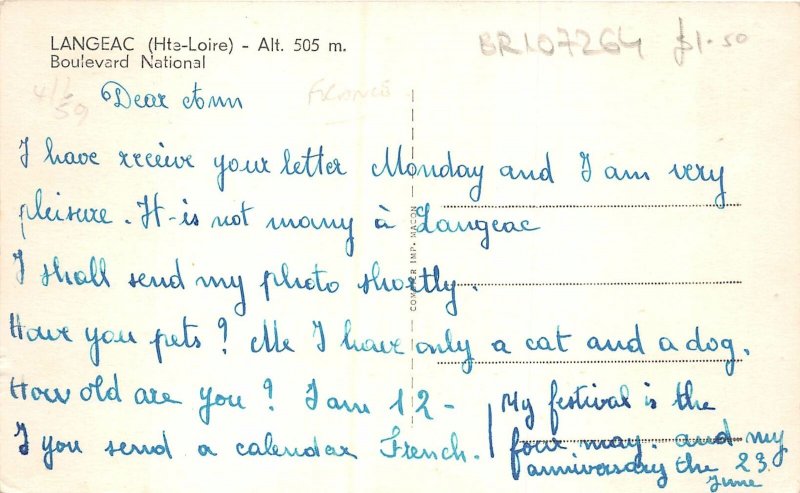 LANGEAC (Hte-Loire) - Alt. 505 m.
Boulevard National
BR107264 $1.50
4/6
59
FRANCE
Dear Ann
I have receive your letter Monday and I am very
pleisure. It-is not many à Langeac
I shall send my photo shortly.
Have you pets? Me I have only a cat and a dog.
How old are you? I am 12-
I you send a calendar French.
My festival is the
four may. and my
anniversary the 23
June
COMBIER IMP. MACON